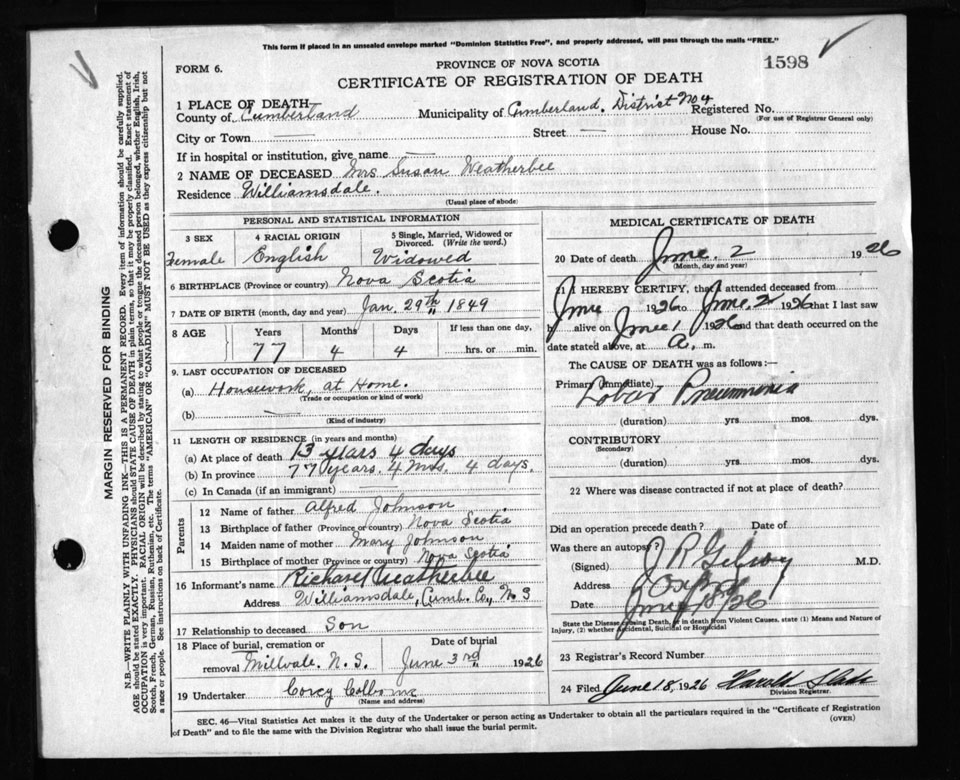 This form if placed in an unsealed envelope marked "Dominion Statistics Free", and properly addressed, will pass through the mails "FREE."
FORM 6.
PROVINCE OF NOVA SCOTIA
1598
CERTIFICATE OF REGISTRATION OF DEATH
1 PLACE OF DEATH
County of Cumberland Municipality of Cumberland. District No 4 Registered No.
(For use of Registrar General only)
City or Town Street House No.
If in hospital or institution, give name
2 NAME OF DECEASED Mrs Susan Weatherbee
Residence Williamsdale.
(Usual place of abode)
PERSONAL AND STATISTICAL INFORMATION
3 SEX 4 RACIAL ORIGIN 5 Single, Married, Widowed or Divorced. (Write the word.)
Female English Widowed
6 BIRTHPLACE (Province or country) Nova Scotia
7 DATE OF BIRTH (month, day and year) Jan. 29th 1849
8 AGE Years Months Days If less than one day,
77 4 4 hrs. or min.
9. LAST OCCUPATION OF DECEASED
(a) Housework, at Home.
(Trade or occupation or kind of work)
(b)
(Kind of industry)
11 LENGTH OF RESIDENCE (in years and months)
(a) At place of death 13 years 4 days
(b) In province 77 years. 4 Mos. 4 days.
(c) In Canada (if an immigrant)
Parents
12 Name of father Alfred Johnson
13 Birthplace of father (Province or country) Nova Scotia
14 Maiden name of mother Mary Johnson
15 Birthplace of mother (Province or country) Nova Scotia
16 Informant's name Richard Weatherbee
Address Williamsdale, Cumb. Co., N. S
17 Relationship to deceased Son
18 Place of burial, cremation or Date of burial
removal Millvale. N. S. June 3rd 1926
19 Undertaker
(Name and address)
MEDICAL CERTIFICATE OF DEATH
20 Date of death June 2 1926
(Month, day and year)
21 I HEREBY CERTIFY, that I attended deceased from
June 1926 to June 2 1926 that I last saw
h alive on June 1 1926 and that death occurred on the
date stated above, at A. m.
The CAUSE OF DEATH was as follows:—
Primary (Immediate) Lobar Pneumonia
(duration) yrs. mos. dys.
CONTRIBUTORY
(Secondary)
(duration) yrs. mos. dys.
22 Where was disease contracted if not at place of death?
Did an operation precede death? Date of
Was there an autopsy?
(Signed) M.D.
Address Oxford
Date June 18/26
State the Disease causing Death, or in death from Violent Causes, state (1) Means and Nature of
Injury, (2) whether Accidental, Suicidal or Homicidal
23 Registrar's Record Number
24 Filed June 18, 1926 Harold
Division Registrar.
SEC. 46—Vital Statistics Act makes it the duty of the Undertaker or person acting as Undertaker to obtain all the particulars required in the "Certificate of Registration
of Death" and to file the same with the Division Registrar who shall issue the burial permit.
(OVER)
MARGIN RESERVED FOR BINDING
N.B.—WRITE PLAINLY WITH UNFADING INK—THIS IS A PERMANENT RECORD. Every item of information should be carefully supplied.
AGE should be stated EXACTLY. PHYSICIANS should STATE CAUSE OF DEATH in plain terms, so that it may be properly classified. Exact statement of
OCCUPATION is very important. RACIAL ORIGIN will be described by stating to what people or tongue the deceased person belonged, whether English, Irish,
Scotch, French, German, Russian, Ruthenian, etc. The terms "AMERICAN" OR "CANADIAN" MUST NOT BE USED as they express citizenship but not
a race or people. See instructions on back of Certificate.